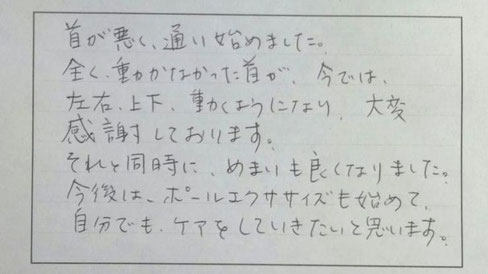 首が悪く、通い始めました。
全く、動かなかった首が、今では、
左右、上下、動くようになり、大変
感謝しております。
それと同時に、めまいも良くなりました。
今後は、ポールエクササイズも始めて、
自分でも、ケアをしていきたいと思います。